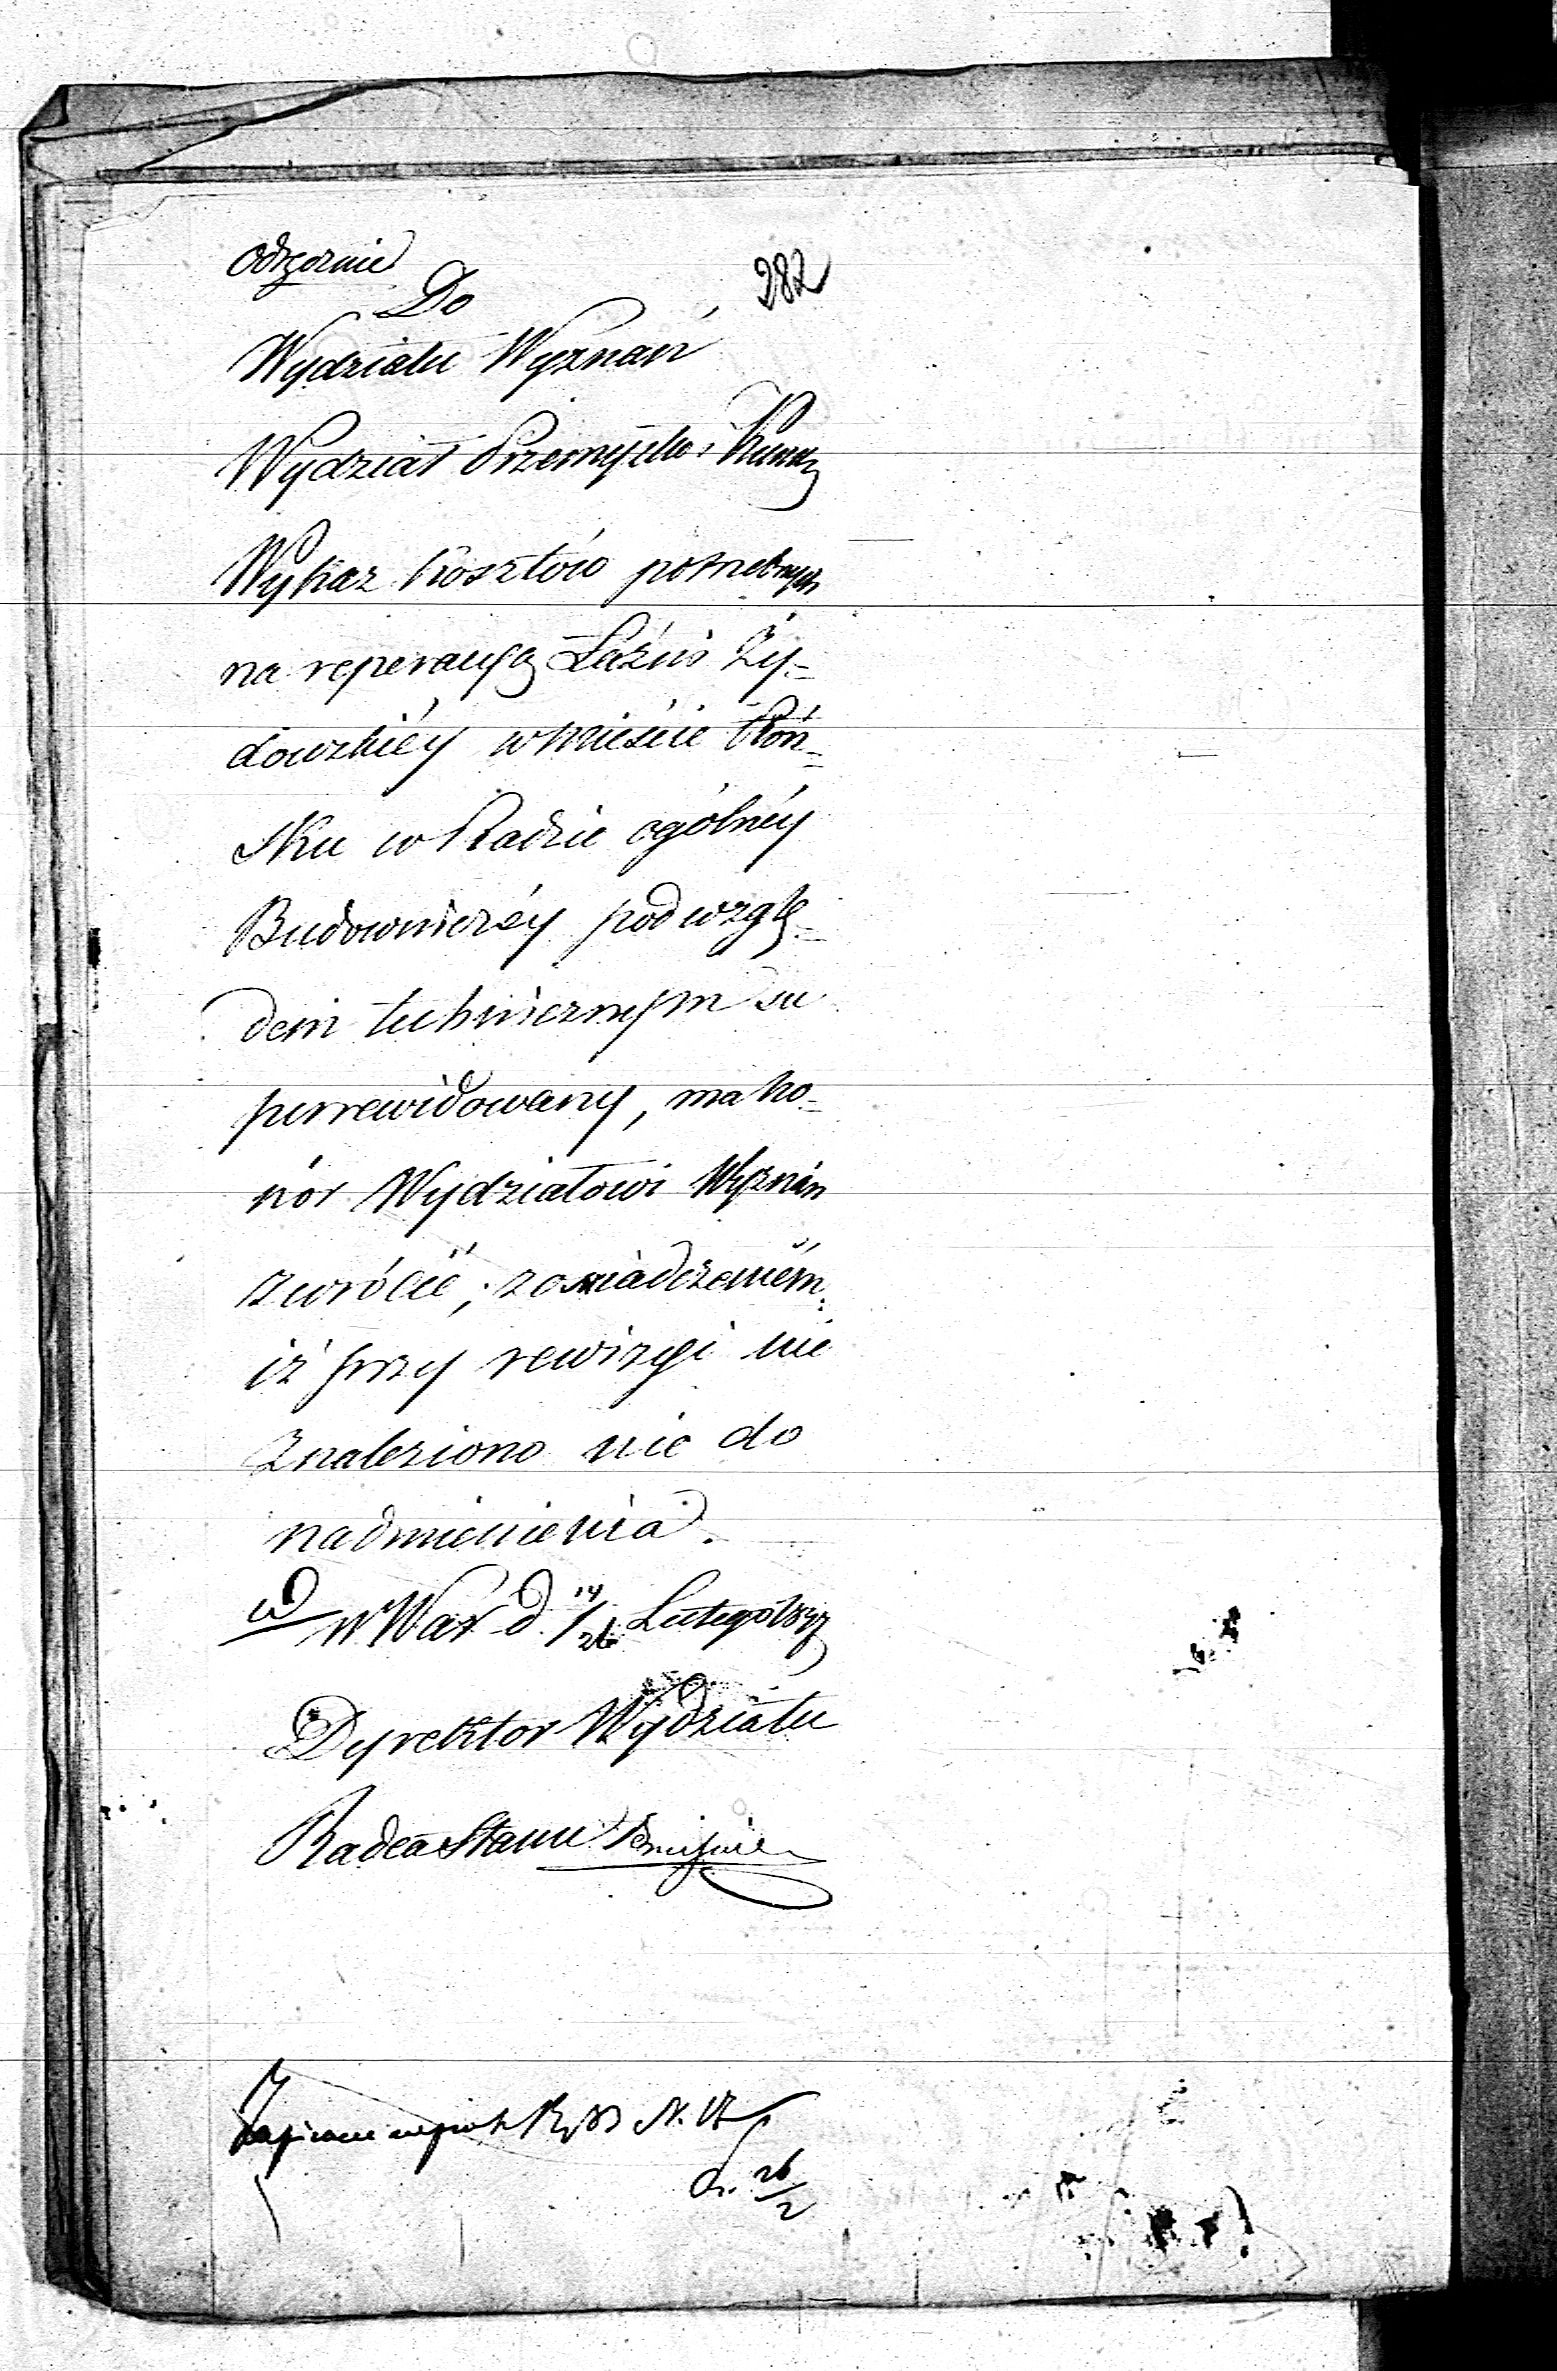 Odręcznie
282
Do
Wydziału Wyznań
Wydział Przemysłu i Kunsz
Wykaz kosztów potrzebnych
na reperacyą Łaźni Ży-
dowskiéy w mieście Płoń-
sku w Radzie ogólnéy
Budowniczéy pod wzglę-
dem technicznym su
perrewidowany, ma ho-
nor Wydziałowi Wyznań
zwrócić, z oswiadczeniém
iż przy rewizyi nic
znaleziono nic do
nadmienienia.
w War d. 14/26 Lutego
Dyrektor Wydziału
Radca Stanu
N.
26/2